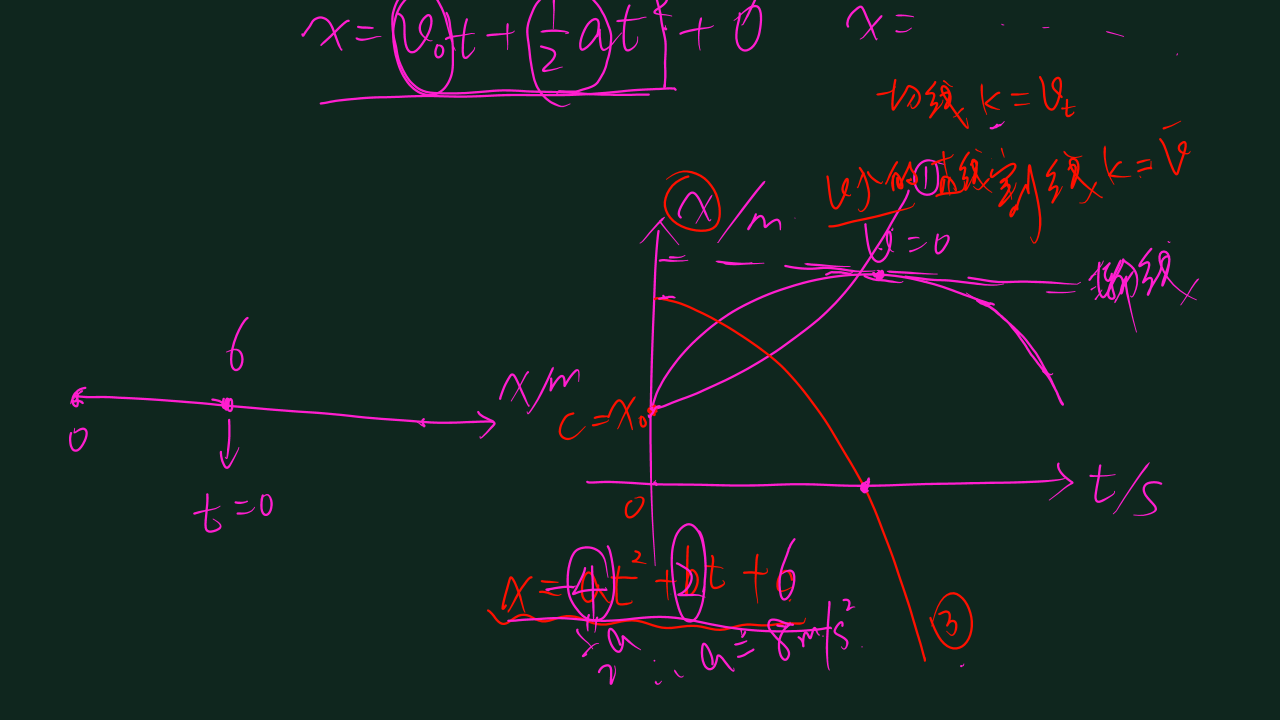 x = v₀t + ½at² + 0
x =
切线 k = vₜ
①
k = v̄
x/m
v = 0
切线
6
x/m
0
t = 0
C = x₀
0
t/s
x = -4t² + 2t + 6
½a
∴ a = 8m/s²
③